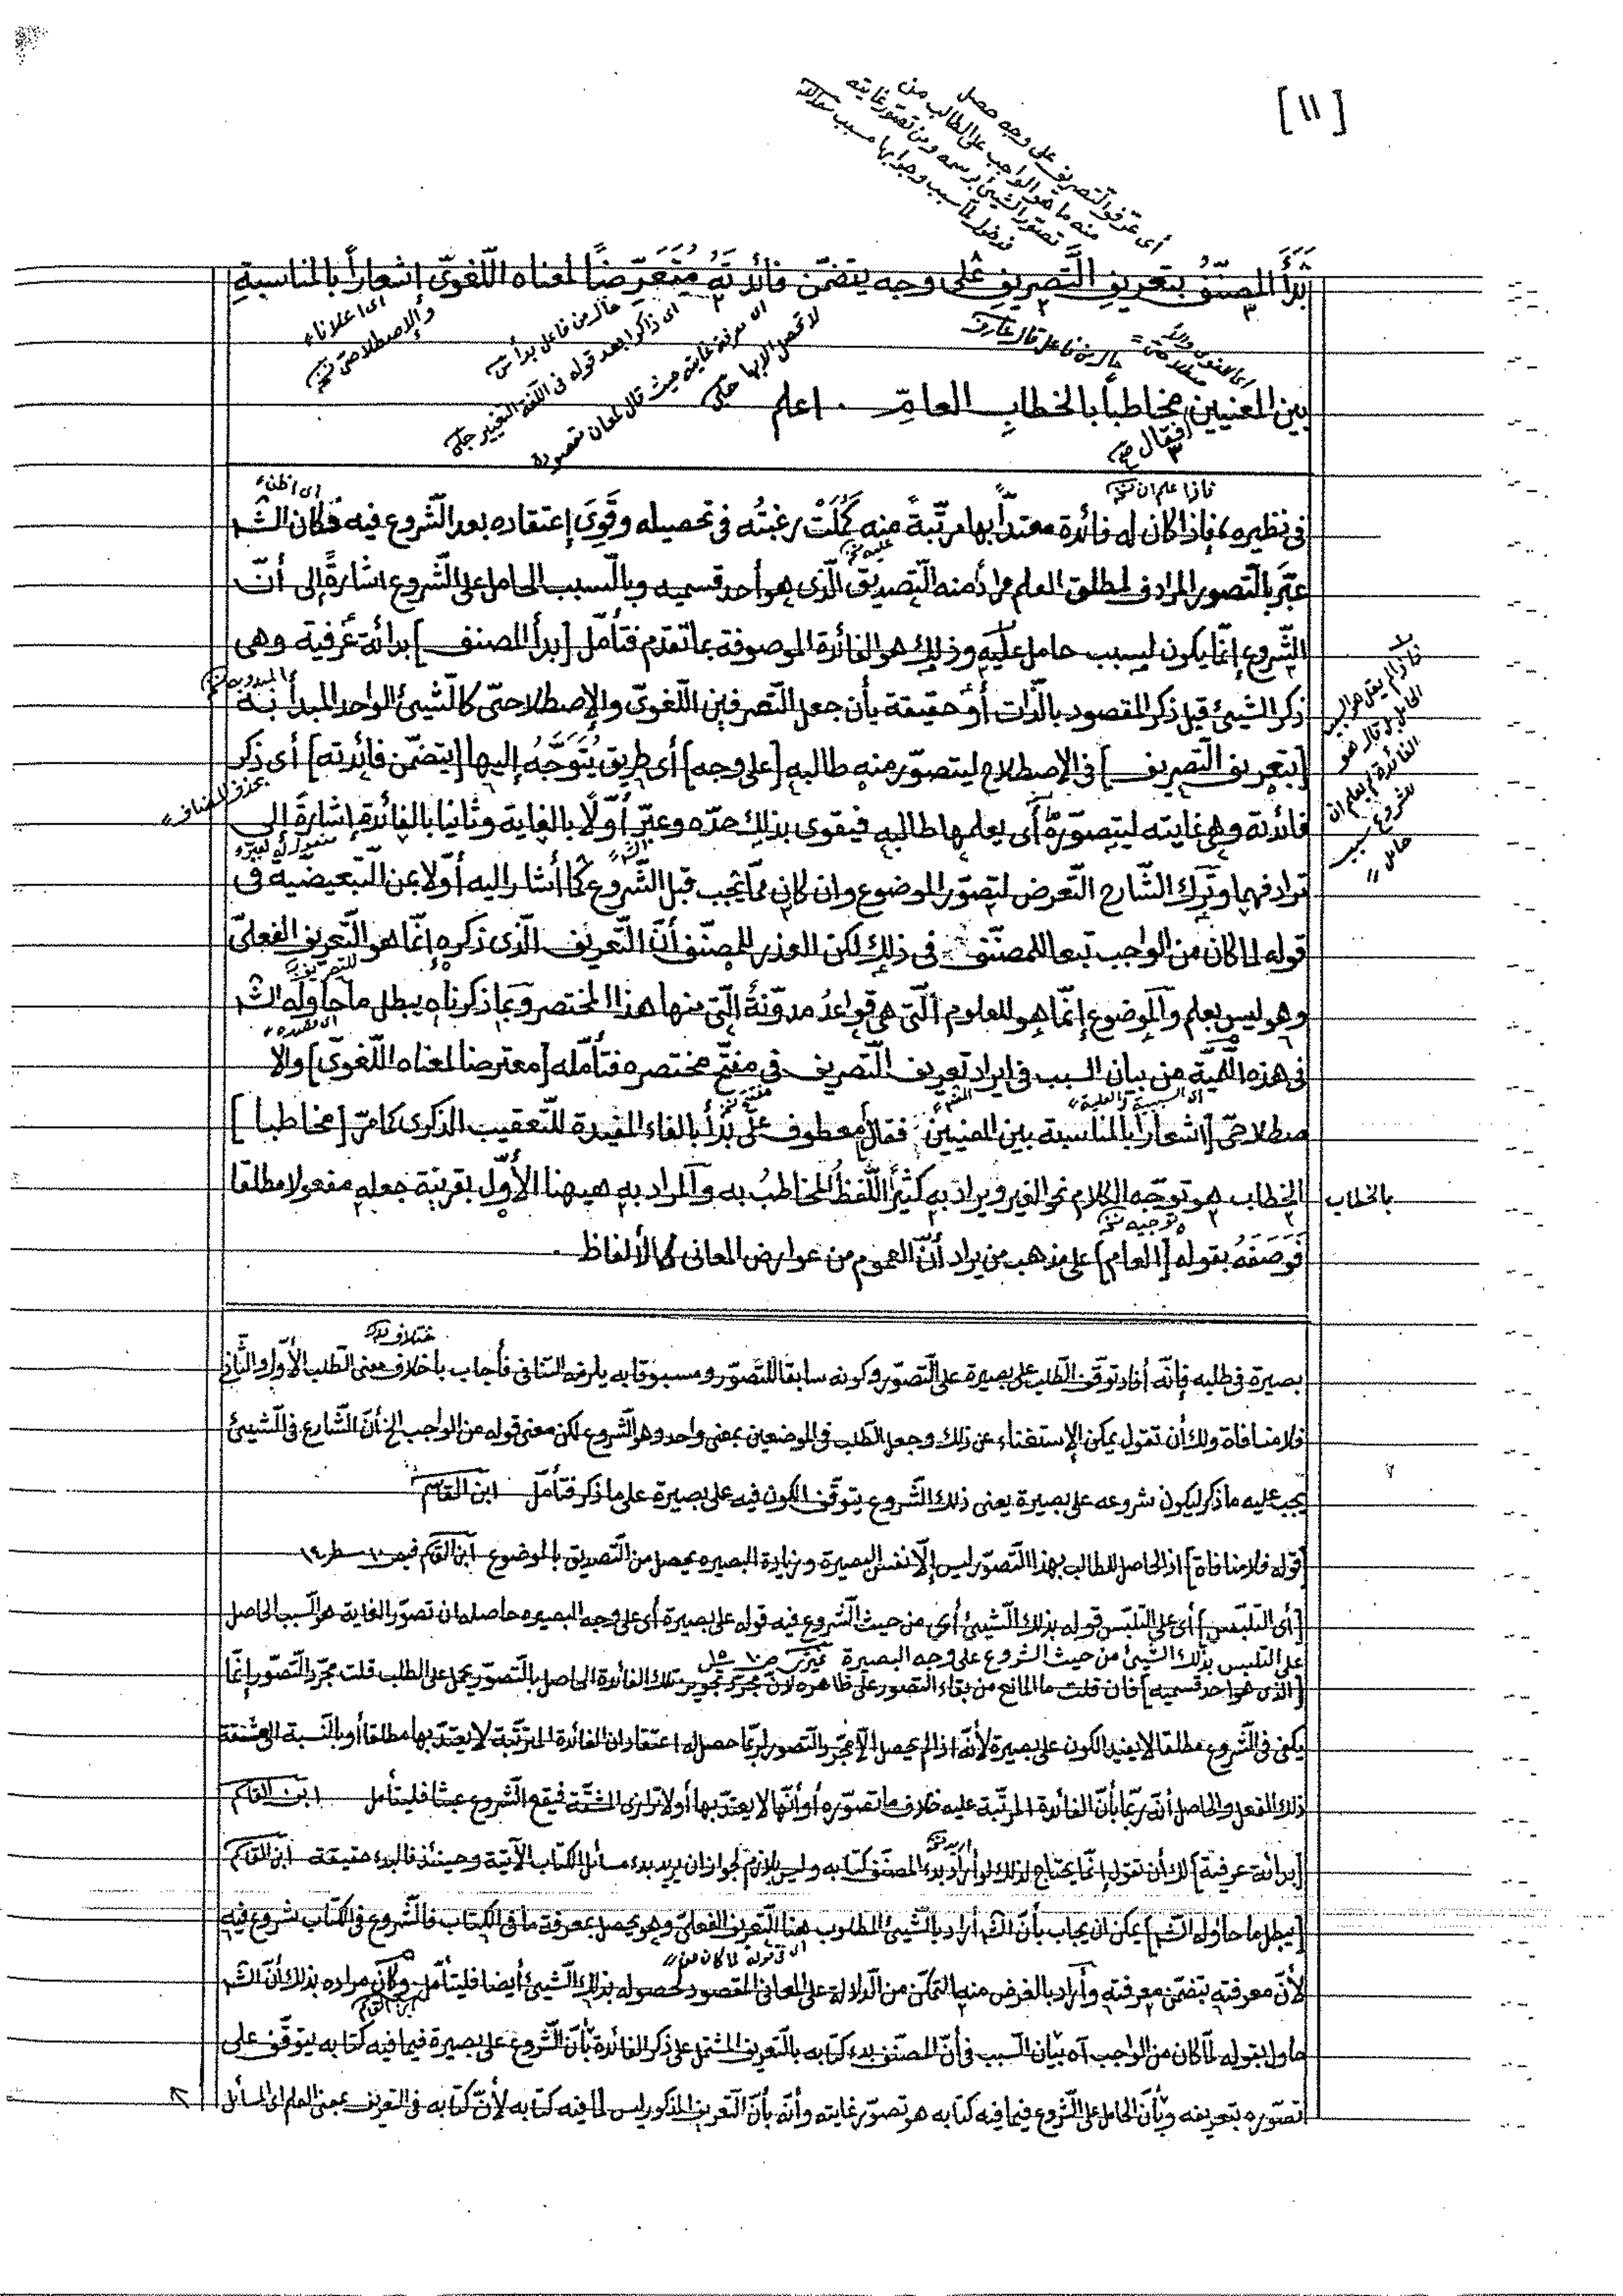 [١١]
أى عرّف التّصريف على وجه حصل
منه ما هو الواجب على الطالب من
تصوّر الشيئ برسمه ومن تصوّر غايته
بَدَأَ المصنّفُ بتعريفِ التَّصريفِ على وجه يتضمّن فائدتَهُ مُتَعَرِّضًا لمعناه اللّغوىّ إشعاراً بالمناسبةِ
أى اعلاناء
والإصطلاحىّ نسخه
حال من فاعل بدأ
أى ذاكرا بعد قوله فى اللّغة التغيير
أى معرفة غايته حيث قال لمعان مقصودة
لا تحصل إلا بها
بين المعنيين مخاطباً بالخطابِ العامِّ . اعلم
فقال
فاذا علم ان نسخه
أى الظنّ
فى نظيره، فإذا كان له فائدة معتدّاً بها مرتّبةً منه كَمُلَتْ رغبتُه فى تحصيله وقَوِىَ إعتقاده بعد الشّروع فيه فكان الشّـ
عليه نسخه
عبّر بالتّصور المرادف لمطلق العلم مراداً منه التّصديق الّذى هو أحد قسميه وبالسّبب الحامل على الشّروع اشارةً إلى أنّ
الشّروع إنّما يكون لسبب حامل عليه وذلك هو الفائدة الموصوفة بما تقدم فتأمّل [بدأ المصنف] بدائة عرفية وهى
ذكر الشيئ قبل ذكر المقصود بالذّات أو حقيقة بأن جعل التّصرفين اللّغوىّ والإصطلاحىّ كالشّيئ الواحد المبدأ به
[بتعريف التّصريف] فى الإصطلاح ليتصوّر منه طالبه [على وجه] أى طريق يُتَوَجَّهُ إليها [يتضمّن فائدته] أى ذكر
بحذف المضاف
فائدته وهى غايته ليتصوّره أى يعلمها طالبه فيقوى بذلك جدّه وعبّر أوّلًا بالغاية وثانيا بالفائدة إشارةً إلى
ترادفهما وتَرَك الشّارح التّعرض لتصوّر الموضوع وان كان ممّا يجب قبل الشّروع كما أشار إليه أوّلا بمن التّبعيضيه فى
قوله لما كان من الواجب تبعا للمصنّف فى ذلك لكن العذر للمصنّف أنّ التّعريف الّذى ذكره إنّما هو للتّعريف الفعلىّ
للتصريف
وهو ليس بعلم والموضوع إنّما هو للعلوم الّتى هى قواعدُ مدوّنةُ الّتى منها هذا المختصر وبما ذكرناه يبطل ما حاوله الشّـ
فى هذه الّلميّة من بيان السبب فى ايراد تعريف التّصريف فى مفتتح مختصره فتأمّله [معترضا لمعناه اللّغوىّ] والا
أى السببية والعلية
صطلاحىّ [اشعاراً بالمناسبة بين المعنيين] فقال معطوف على بَدَأَ بالفاء المفيدة للتّعقيب الذكرى كما مرّ [مخاطبا]
بالخطاب
الخطاب هو توجّه الكلام نحو الغير ويراد به كثيراً اللّفظُ المخاطبُ به والمراد به هيهنا الأوّل بقرينة جعله مفعولا مطلقا
توجيه نسخه
فَوَصَفَهُ بقوله [العام] على مذهب من يراد أنّ العموم من عوارض المعانى كالألفاظ .
فاذا لم يقل
الفائدة ليعلم ان
للشروع سبب
حامل
بصيرة فى طلبه فإنّه أفاد توقّف الطّلب على بصيرة على التّصوّر وكونه سابقا للتّصوّر ومسبوقا به يلزمه التّنافى فأجاب باختلاف معنى الطّلب الأوّل والثّانى
فلا منافاة ولك أن تقول يمكن الإستغناء عن ذلك وجعل الطّلب فى الموضعين بمعنى واحد وهو الشّروع لكن معنى قوله من الواجب الخ أنّ الشّارع فى الشّيئ
يجب عليه ما ذكر ليكون شروعه على بصيرة يعنى ذلك الشّروع يتوقّف الكون فيه على بصيرة على ما ذكر فتأمّل ابن القاسم
[قوله فلا منافاة] اذ الحاصل للطالب بهذا التّصوّر ليس إلّا نفس البصيرة وزيادة البصيره يحصل من التّصديق بالموضوع ابن القاسم
[أى التّلبّس] أى على التّلبّس قوله بذلك الشّيئ أى من حيث الشّروع فيه قوله على بصيرة أى على وجه البصيره حاصله ان تصوّر الغاية هو السّبب الحاصل
على التّلبس بذلك الشّيئ من حيث الشروع على وجه البصيرة
[الّذى هو احد قسميه] فان قلت ما المانع من بقاء التّصور على ظاهره لأنّ مجرّد تجويز تلك الفائدة الحاصل بالتّصوّر يحمل على الطلب قلت مجرّد التّصوّر إنّما
يكفى فى الشّروع مطلقا لا يفيد الكون على بصيرة لأنّه اذا لم يحصل إلّا مجرّد التّصور لربّما حصل له اعتقاد ان الفائدة المترتّبة لا يعتدّ بها مطلقا أو بالنّسبة الى مشقة
ذلك الفعل والحاصل أنّه ربّما بأنّ الفائدة المرتّبة عليه خلاف ما تصوّره أو أنّها لا يعتدّ بها أو لا توازى المشقّة فيقع الشّروع عبثا فليتأمل ابن القاسم
[بدائة عرفية] لك أن تقول إنّما يحتاج لذلك لو أراد بدء المصنّف كتابه وليس بلازم لجواز ان يريد بدء مسائل الكتاب الآتية وحينئذ فالبدء حقيقة ابن القاسم
[يبطل ما حاوله الشّـ] يمكن ان يجاب بأنّ الشّـ أراد بالشّيئ المطلوب هنا التّعريف الفعلىّ وهو يحصل بمعرفة ما فى الكتاب فالشّروع فى الكتاب شروع فيه
أى فى قوله لما كان من
لأنّ معرفته يتضمّن معرفته وأراد بالغرض منه التمكّن من الدّلالة على المعانى المقصود لحصوله بذلك الشّيئ أيضا فليتأمّل وكأنّ مراده بذلك أنّ الشّـ
حاول بقوله لمّا كان من الواجب آه بيان السّبب فى أنّ المصنّف بدء كتابه بالتّعريف المشتمل على ذكر الفائدة بأنّ الشّروع على بصيرة فيما فيه كتابه يتوقّف على
تصوّره بتعريفه وبأنّ الحامل على الشّروع فيما فيه كتابه هو تصوّر غايته وأنّه بأنّ التّعريف المذكور ليس لما فيه كتابه لأنّ كتابه فى التعريف بمعنى العلم اى المسائل